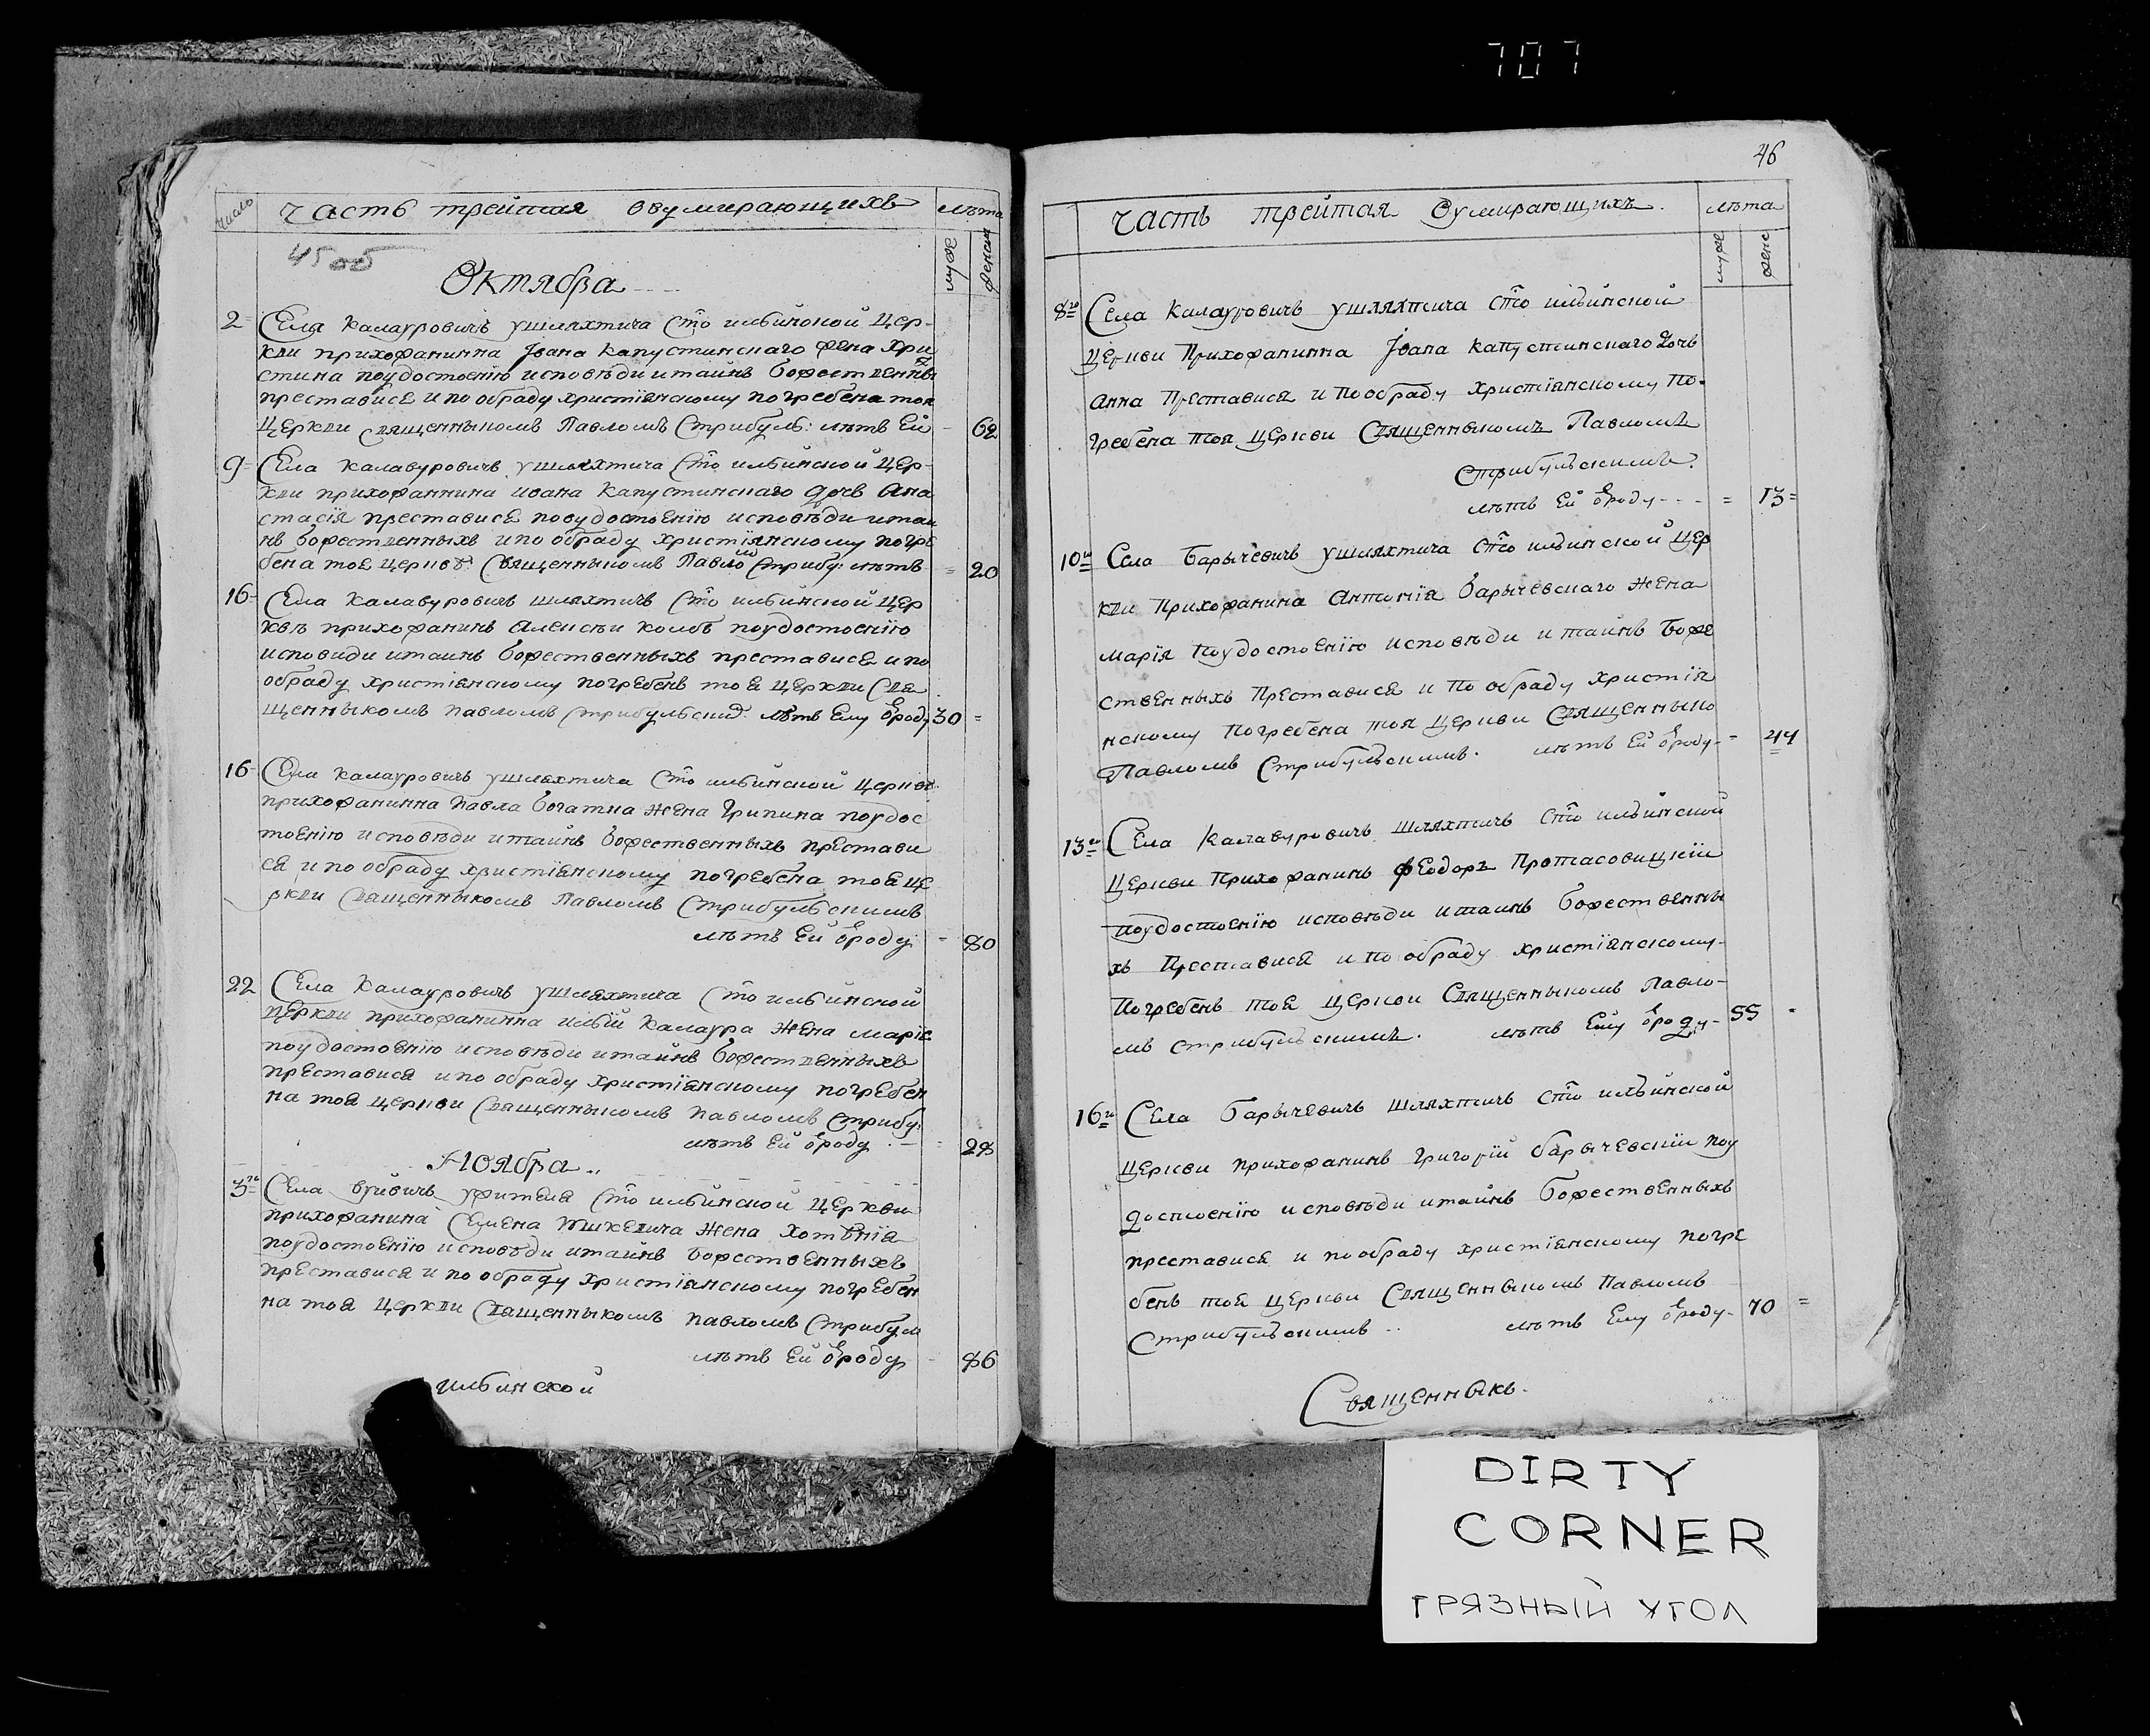 707
число Часть трейтая оѹмирающихъ лѣта
муже женска
Октября
2 Села Калауровичъ ушляхтича Сто ильинской Цер-
кви прихожанинна Іоана Капустинскаго жена Хри
стина поудостоенію исповѣди итаинъ божественны
преставися ипо обряду христіянскому погребена тоя
Церкви священныкомъ Павломъ Стрибуль: лѣтъ Ей 62
9 Села Калавуровичъ ушляхтича Сто ильинской Цер-
кви прихожаннина ивана Капустинскаго дочь Ана
стасія преставися повудостоенію исповѣди итаи
нъ божественныхъ ипо обряду христіянскому погре
бена тоя церкв: Священныкомъ Павло Стрибу: лѣтъ 20
16 Села Калавуровичъ шляхтичъ Сто ильинской Цер
квѣ прихожанинъ Алексѣи колбъ поудостоенію
исповиди итаинъ божественныхъ преставися ипо
обряду христіянскому погребенъ тоя церкви Свя
щенныкомъ Павломъ Стрибульский: лѣтъ Ему ѿроду 30
16 Села Калауровичъ ушляхтича Сто ильинской Церкви
прихожанинна Павла богатиа жена Грипина поудос
тоенію исповѣди итаинъ божественныхъ престави
ся ипо обряду христіянскому погребена тоя це
ркви Священныкомъ Павломъ Стрибульскимъ
лѣтъ Ей ѿроду 80
22 Села Калауровичъ ушляхтича Сто ильинской
Церкви прихожанинна ильи Калаура жена Маріе
поудостоенію исповѣди итаинъ божественныхъ
преставися ипо обряду христіянскому погребен
на тоя церкви Священныкомъ Павломъ Стрибу:
лѣтъ Ей ѿроду 28
Ноября
3 Села вуйвичъ ужителя Сто ильинской Церкви
прихожанина Семена жена Хотѣнія
поудостоенію исповѣди итаинъ божественныхъ
преставися ипо обряду христіянскому погребен
на тоя Церкви Священныкомъ Павломъ Стрибул
лѣтъ Ей ѿроду 86
ильинской
46
Часть трейтая оумирающихъ лѣта
муже женс
8 Села Калауровичъ ушляхтича Сто ильинской
Церкви Прихожанинна Іоана Капустинскаго дочь
Анна Преставися и Пообряду христіянскому По-
гребена тоя Церкви Священныкомъ Павломъ
Стрибульскимъ.
лѣтъ Ей ѿроду 13
10 Села Барычевичъ ушляхтича Сто ильинской Цер
кви Прихожанина Антонія барычевскаго жена
марія Поудостоенію исповѣди и таинъ Боже
ственныхъ Преставися и По обряду христія
нскому Погребена тоя Церкви Священныко
Павломъ Стрибульскимъ. лѣтъ Ей ѿроду 44
13 Села Калавуровичъ шляхтичъ Сто ильинской
Церкви Прихожанинъ Феодоръ Протасовицкіи
Поудостоенію исповѣди итаинъ божественны
хъ Преставися и По обряду христіянскому
Погребенъ тоя Церкви Священныкомъ Павло-
мъ стрибульскимъ. лѣтъ Ему ѿроду 55
16 Села Барычевичъ шляхтичъ Сто ильинской
Церкви прихожанинъ Григорій барычевскіи поу
достоенію исповѣди итаинъ Божественныхъ
преставися и пообряду христіянскому погре
бенъ тоя Церкви Священныкомъ Павломъ
Стрибульскимъ лѣтъ Ему ѿроду 70
Священныкъ.
DIRTY
CORNER
ГРЯЗНЫЙ УГОЛ